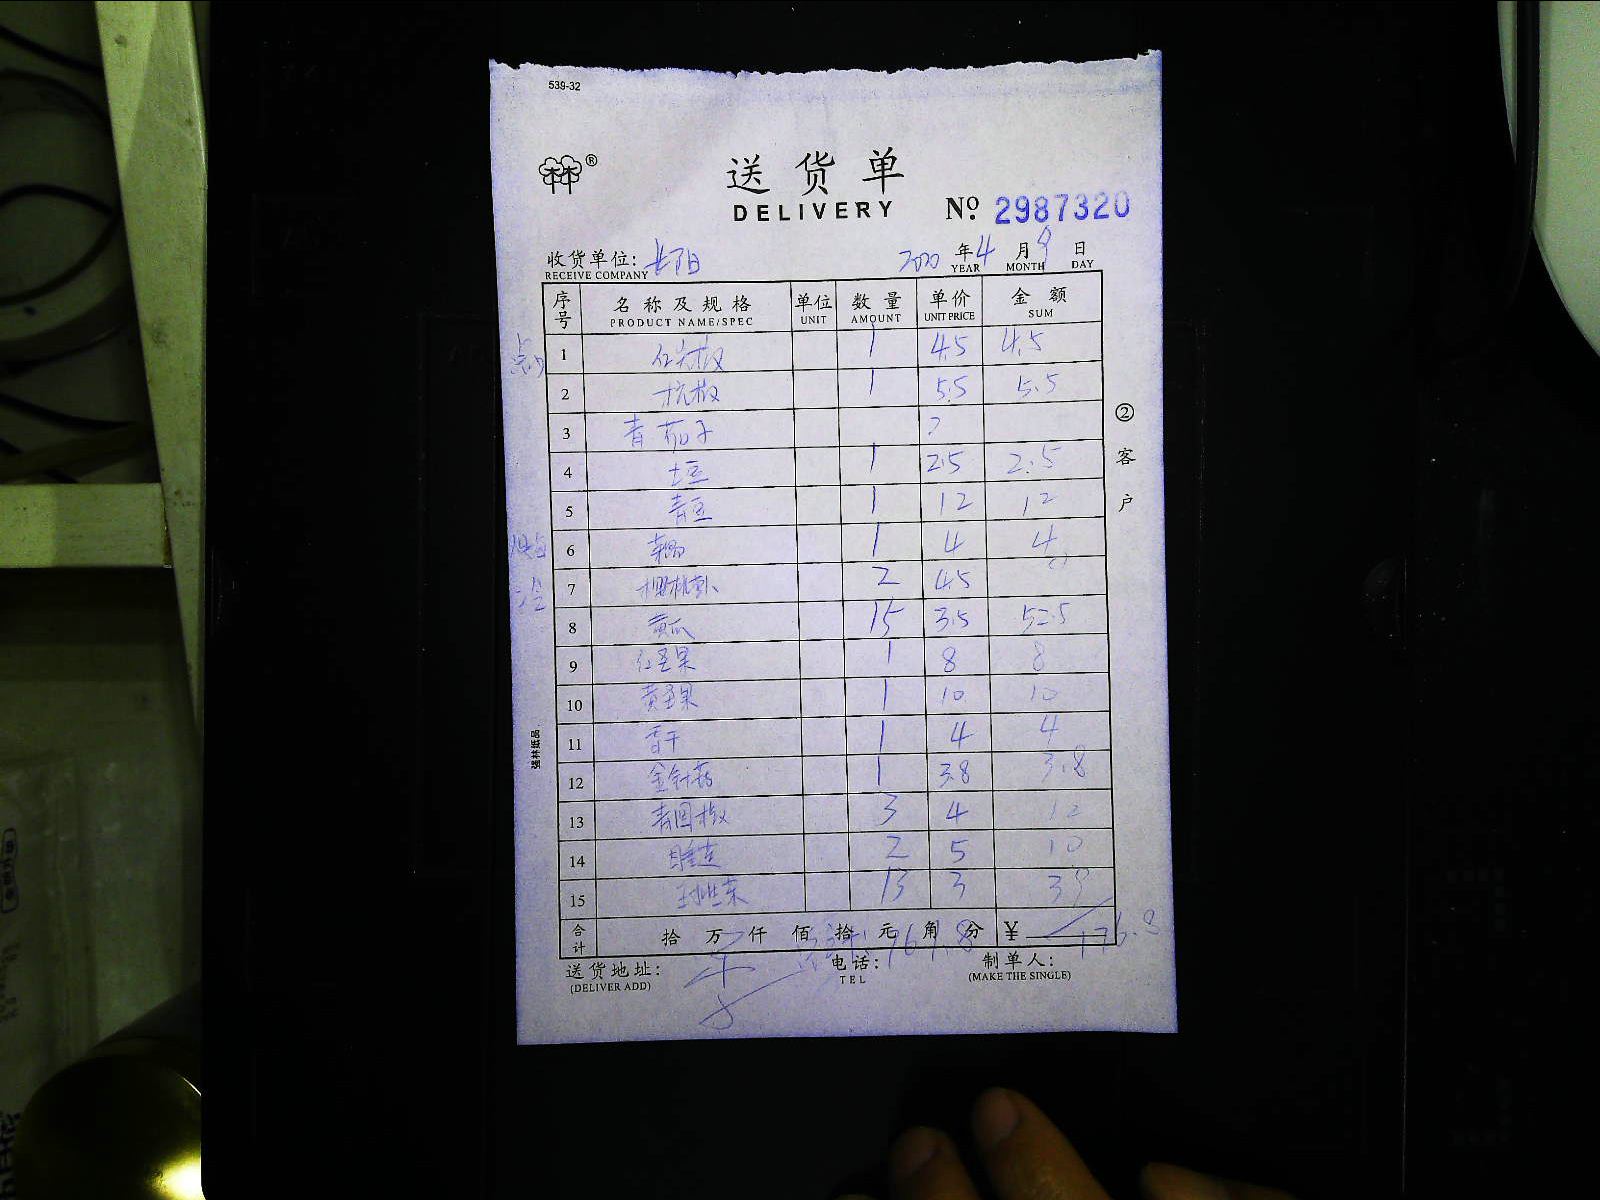 539-32
林®
送货单
DELIVERY № 2987320
收货单位: 2020 年 4 月 9 日
RECEIVE COMPANY YEAR MONTH DAY
序号 名称及规格 单位 数量 单价 金额
PRODUCT NAME/SPEC UNIT AMOUNT UNIT PRICE SUM
1 红尖椒 1 4.5 4.5
2 杭椒 1 5.5 5.5
3 青茄子 ?
4 土豆 1 2.5 2.5
5 青豆 1 12 12
6 1 4 4
7 樱桃萝卜 2 4.5
8 黄瓜 15 3.5 52.5
9 红圣果 1 8 8
10 黄圣果 1 10 10
11 香干 1 4 4
12 金针菇 1 3.8 3.8
13 青园椒 3 4 12
14 2 5 10
15 13 3 39
合计 拾 万 仟 佰 拾 元 角 分 ¥ 176.8
送货地址: 电话: 制单人:
(DELIVER ADD) TEL (MAKE THE SINGLE)
② 客户
强林纸品